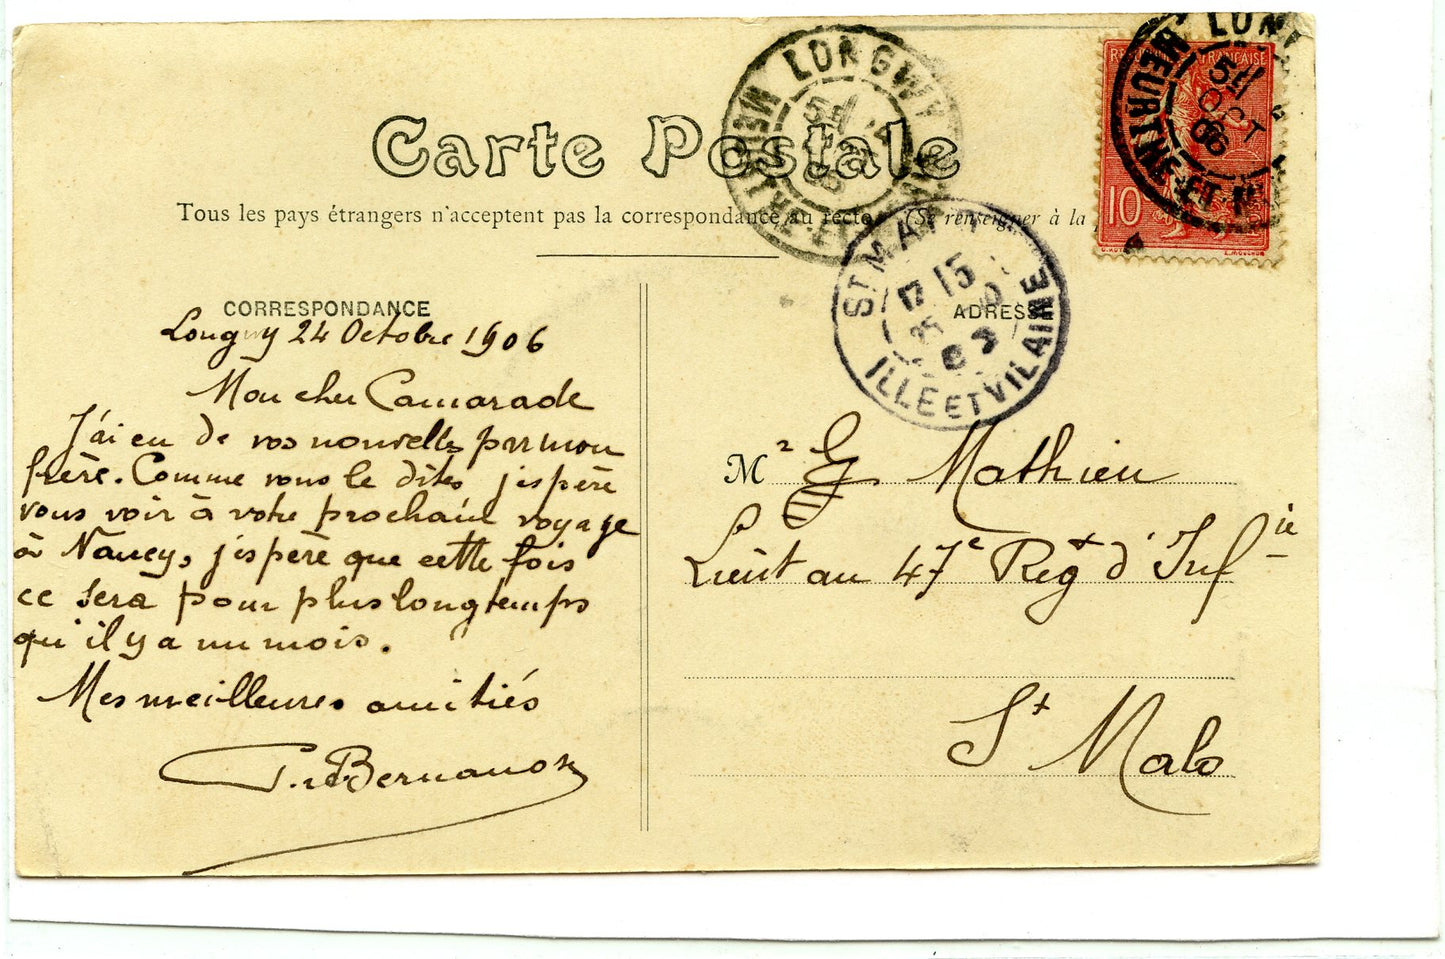 Carte Postale
Tous les pays étrangers n'acceptent pas la correspondance au recto (Se renseigner à la
LONGWY
MEURTHE-ET-M
LON
MEURTHE-ET-M
OCT
06
RÉPUBLIQUE FRANÇAISE
10
ST MALO
17 15
25
ILLE ET VILAINE
CORRESPONDANCE
ADRESSE
Longwy 24 Octobre 1906
Mon cher Camarade
J'ai eu de vos nouvelles par mon
frère. Comme vous le dites j'espère
vous voir à votre prochain voyage
à Nancy, j'espère que cette fois
ce sera pour plus longtemps
qu'il y a un mois.
Mes meilleures amitiés
Bernanose
Mr G Mathieu
Lieut au 47e Regt d'Infie
St Malo